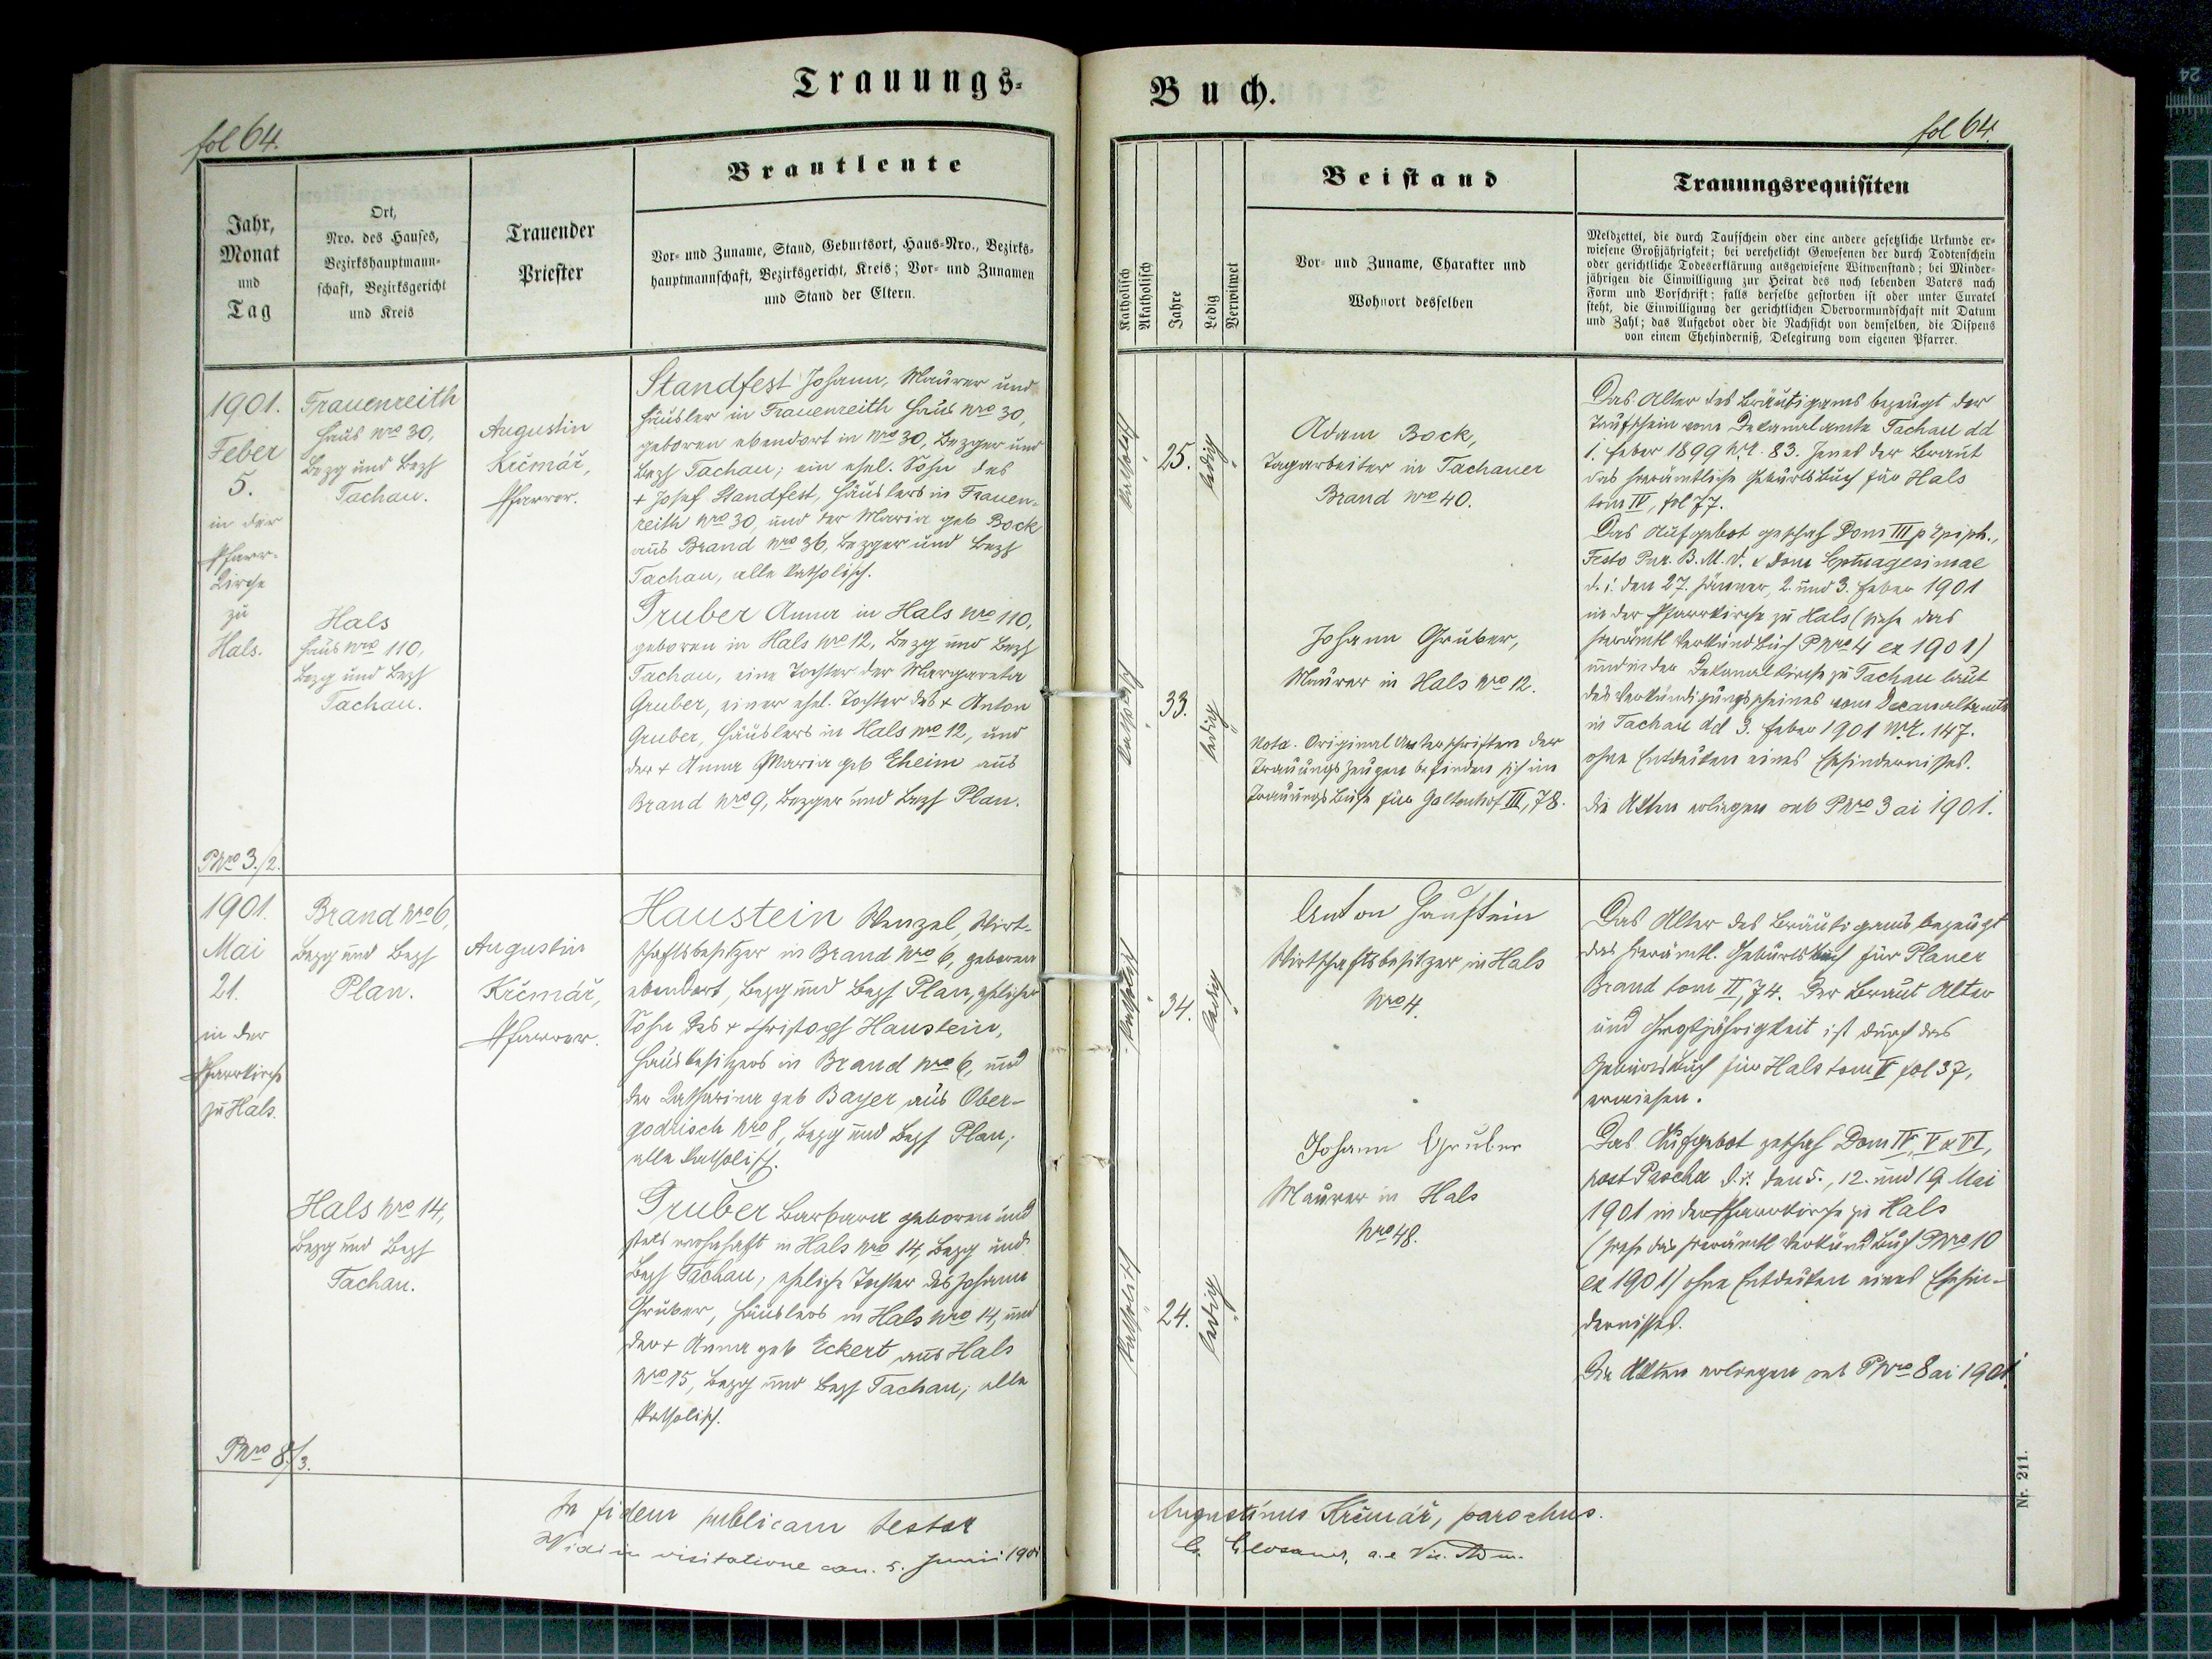 Trauungs-
fol 64.
Jahr,
Monat
und
Tag
Ort,
Nro. des Hauses,
Bezirkshauptmann-
schaft, Bezirksgericht
und Kreis
Trauender
Priester
Brautleute
Vor- und Zuname, Stand, Geburtsort, Haus-Nro., Bezirks-
hauptmannschaft, Bezirksgericht, Kreis; Vor- und Zunamen
und Stand der Eltern.
1901.
Feber
5.
in der
Pfarr-
kirche
zu
Hals.
PNro 3./2.
Frauenreith
Haus Nro 30,
Bezg und Bezh
Tachau.
Hals
Haus Nro 110,
Bezg und Bezh
Tachau.
Augustin
Krčmář,
Pfarrer.
Standfest Johann, Maurer und
Häusler in Frauenreith Haus Nro 30,
geboren ebendort in Nro 30, Bezger und
Bezh Tachau; ein ehel. Sohn des
+ Josef Standfest, Häuslers in Frauen-
reith Nro 30, und der Maria geb Bock
aus Brand Nro 36, Bezger und Bezh
Tachau, alle katholisch.
Gruber Anna in Hals Nro 110,
geboren in Hals Nro 12, Bezg und Bezh
Tachau, eine Tochter der Margareta
Gruber, einer ehel. Tochter des + Anton
Gruber, Häuslers in Hals Nro 12, und
der + Anna Maria geb Eheim aus
Brand Nro 9, Bezger und Bezh Plan.
1901.
Mai
21.
in der
Pfarrkirche
zu Hals.
PNro 8./3.
Brand Nro 6,
Bezg und Bezh
Plan.
Hals Nro 14,
Bezg und Bezh
Tachau.
Augustin
Krčmář,
Pfarrer.
Haustein Wenzel, Wirt-
schaftsbesitzer in Brand Nro 6, geboren
ebendort, Bezg und Bezh Plan, ehelicher
Sohn des + Christoph Haustein,
Hausbesitzers in Brand Nro 6, und
der Katharina geb Bayer aus Ober-
godrisch Nro 8, Bezg und Bezh Plan;
alle katholisch.
Gruber Barbara geboren und
stets wohnhaft in Hals Nro 14, Bezg und
Bezh Tachau, eheliche Tochter des Johann
Gruber, Häuslers in Hals Nro 14, und
der + Anna geb Eckert aus Hals
Nro 15, Bezg und Bezh Tachau; alle
katholisch.
In fidem publicam testor
Vidi in visitatione can. 5. Junii 1901
Buch.
fol 64.
Katholisch
Akatholisch
Jahre
Ledig
Verwitwet
Beistand
Vor- und Zuname, Charakter und
Wohnort desselben
Trauungsrequisiten
Meldzettel, die durch Taufschein oder eine andere gesetzliche Urkunde er-
wiesene Großjährigkeit; bei verehelicht Gewesenen der durch Todtenschein
oder gerichtliche Todeserklärung ausgewiesene Witwenstand; bei Minder-
jährigen die Einwilligung zur Heirat des noch lebenden Vaters nach
Form und Vorschrift; falls derselbe gestorben ist oder unter Curatel
steht, die Einwilligung der gerichtlichen Obervormundschaft mit Datum
und Zahl; das Aufgebot oder die Nachsicht von demselben, die Dispens
von einem Ehehinderniß, Delegirung vom eigenen Pfarrer.
katholisch
25.
ledig
katholisch
33.
ledig
Adam Bock,
Tagarbeiter in Tachauer
Brand Nro 40.
Johann Gruber,
Maurer in Hals Nro 12.
Nota. Original Unterschriften der
Trauungszeugen befinden sich im
Trauungsbuche für Galtenhof III, 78.
Das Alter des Bräutigams bezeugt der
Taufschein vom Dekanalamte Tachau dd
1. Feber 1899 Nr. 83. Jenes der Braut
das hierämtliche Geburtsbuch für Hals
tom IV, fol 77.
Das Aufgebot geschah Dom III p Epiph.,
Festo Pur. B. M. V. & Dom Septuagesimae
d. i. den 27. Jänner, 2. und 3. Feber 1901
in der Pfarrkirche zu Hals (siehe das
hierämtl Verkündbuch PNro 4 ex 1901)
und in der Dekanalkirche zu Tachau laut
des Verkündigungsscheines vom Decanalamte
in Tachau dd 3. Feber 1901 Nr. 147.
ohne Entdecken eines Ehehindernisses.
Die Akten erliegen sub PNro 3 ai 1901.
katholisch
34.
ledig
katholisch
24.
ledig
Anton Haustein
Wirtschaftsbesitzer in Hals
Nro 4.
Johann Gruber
Maurer in Hals
Nro 48.
Das Alter des Bräutigams bezeugt
das hierämtl. Geburtsbuch für Planer
Brand tom II, 74. Der Braut Alter
und Großjährigkeit ist durch das
Geburtsbuch für Hals tom V fol 37,
erwiesen.
Das Aufgebot geschah Dom IV, V & VI,
post Pascha d. i. den 5., 12. und 19 Mai
1901 in der Pfarrkirche zu Hals
(siehe das hierämtl Verkündbuch PNro 10
ex 1901) ohne Entdecken eines Ehehin-
dernisses.
Die Akten erliegen sub PNro 8 ai 1901.
Augustinus Krčmář, parochus.
a. e. Vic. Adm.
Nr. 211.
24